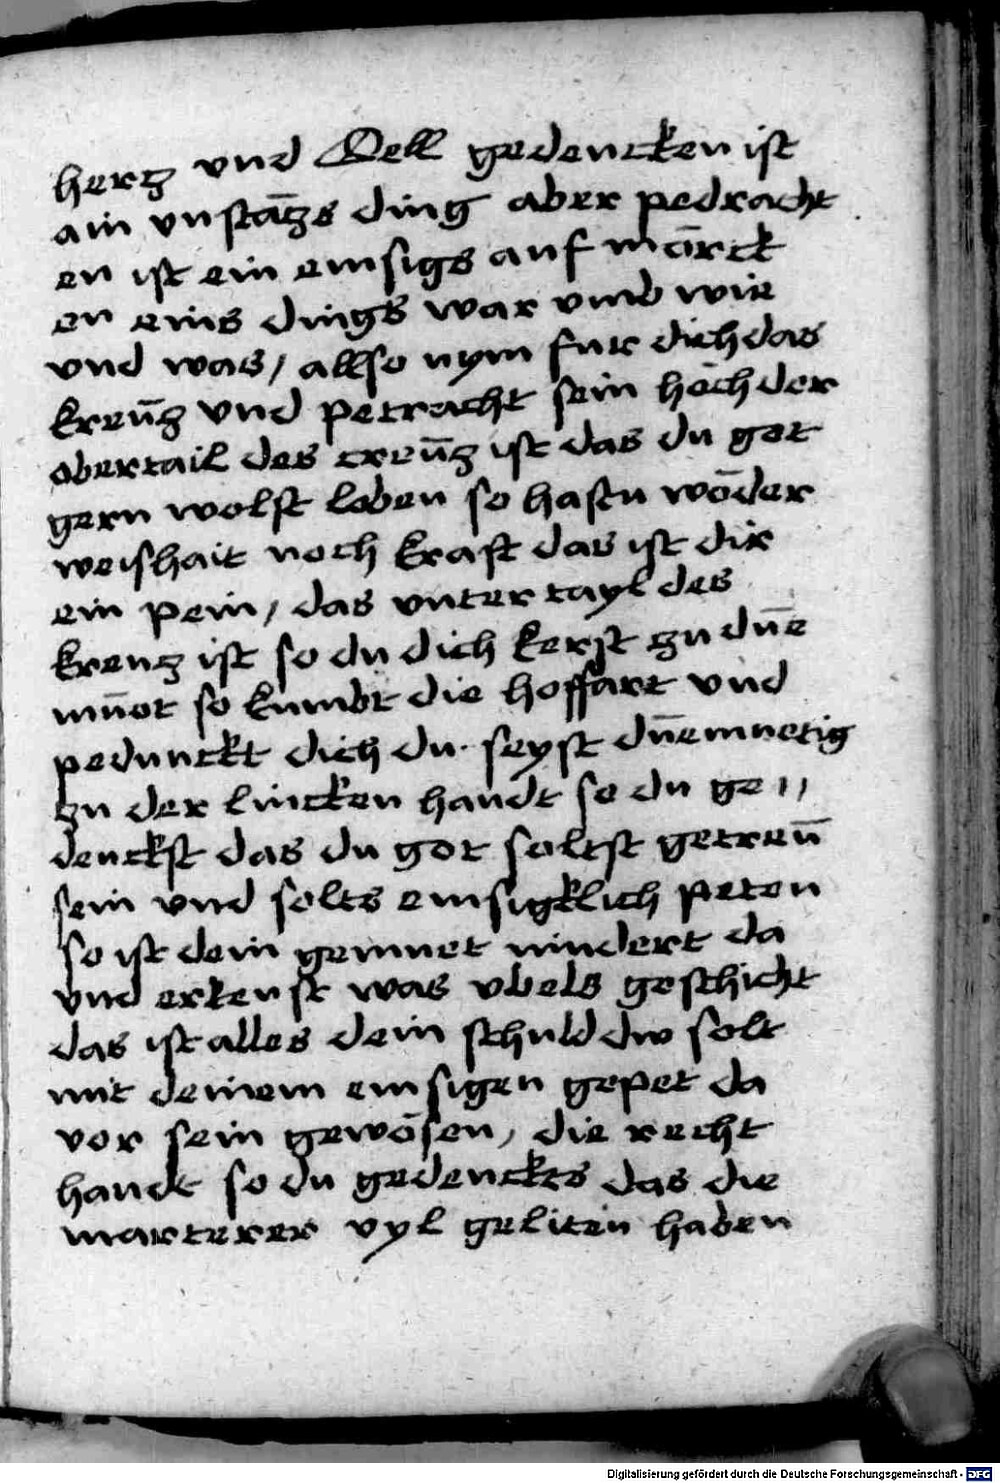 hertz vnd Sell gedencken ist
ain vnstātzs ding aber pedracht
en ist ein emsigs auf mōrck
en eins dings war vmb wie
vnd was/ allso nym fur dich das
kreūtz vnd petracht sein hoch der
obertail des creūtz ist das du got
gern wolst loben so hastu wōder
weishait noch kraft das ist dir
ein pein/ das vnter tayl des
kreutz ist so du dich kerst zu dūe
mūot so kumbt die hoffart vnd
pedunckt dich du seyst dūemuetig
zu der lincken handt so du ge //
denckst das du got soltst getreū
sein vnd solts emsigklich peten
so ist dein gemuet nindert da
vnd erkenst was vbels geschicht
das ist alles dein schuld dw solt
mit deinem emsigen gepet da
vor sein gewōsen, die recht
handt so du gedenckts das die
marterer vyl geliten haben
Digitalisierung gefördert durch die Deutsche Forschungsgemeinschaft - DFG